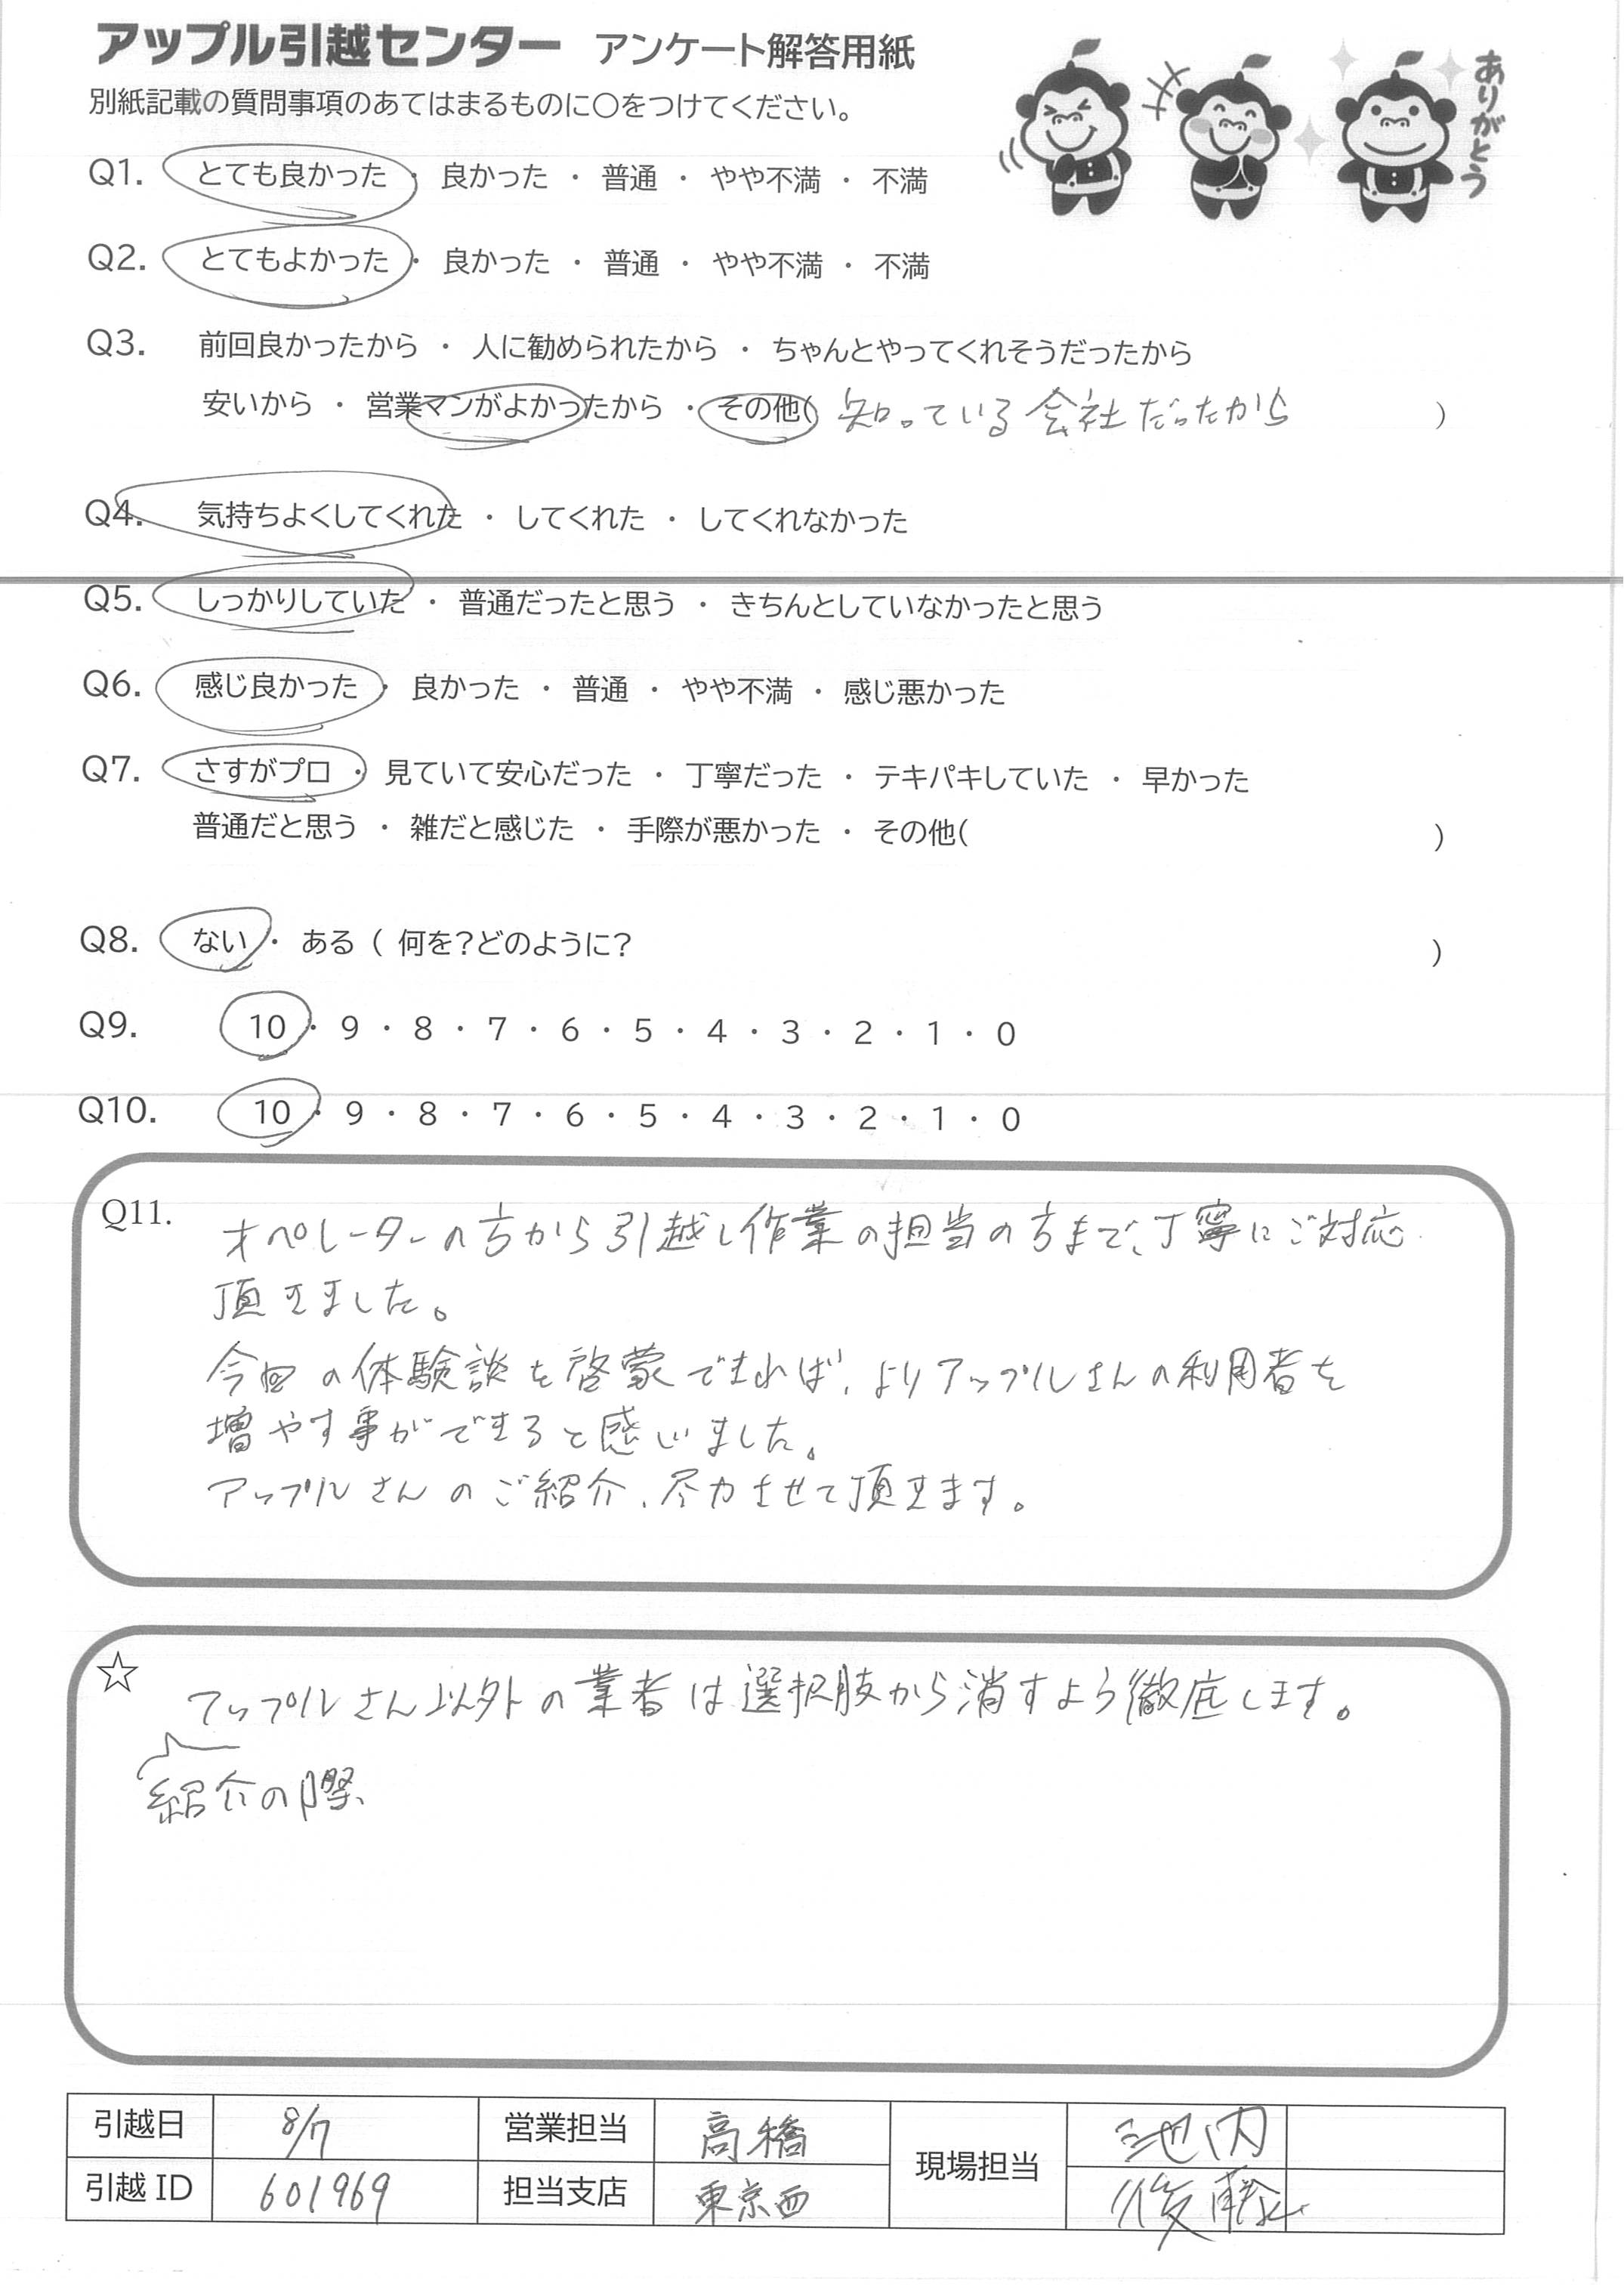 アップル引越センター アンケート解答用紙
ありがとう
別紙記載の質問事項のあてはまるものに○をつけてください。
Q1. とても良かった ・ 良かった ・ 普通 ・ やや不満 ・ 不満
Q2. とてもよかった ・ 良かった ・ 普通 ・ やや不満 ・ 不満
Q3. 前回良かったから ・ 人に勧められたから ・ ちゃんとやってくれそうだったから
安いから ・ 営業マンがよかったから ・ その他( 知っている会社だったから )
Q4. 気持ちよくしてくれた ・ してくれた ・ してくれなかった
Q5. しっかりしていた ・ 普通だったと思う ・ きちんとしていなかったと思う
Q6. 感じ良かった ・ 良かった ・ 普通 ・ やや不満 ・ 感じ悪かった
Q7. さすがプロ ・ 見ていて安心だった ・ 丁寧だった ・ テキパキしていた ・ 早かった
普通だと思う ・ 雑だと感じた ・ 手際が悪かった ・ その他( )
Q8. ない ・ ある ( 何を?どのように? )
Q9. 10 ・ 9 ・ 8 ・ 7 ・ 6 ・ 5 ・ 4 ・ 3 ・ 2 ・ 1 ・ 0
Q10. 10 ・ 9 ・ 8 ・ 7 ・ 6 ・ 5 ・ 4 ・ 3 ・ 2 ・ 1 ・ 0
Q11. オペレーターの方から引越し作業の担当の方まで、丁寧にご対応
頂きました。
今回の体験談を啓蒙できれば、よりアップルさんの利用者を
増やす事ができると感じました。
アップルさんのご紹介、尽力させて頂きます。
☆ アップルさん以外の業者は選択肢から消すよう徹底します。
紹介の際、
引越日 8/7 営業担当 高橋 現場担当 池内
引越 ID 601969 担当支店 東京西 後藤